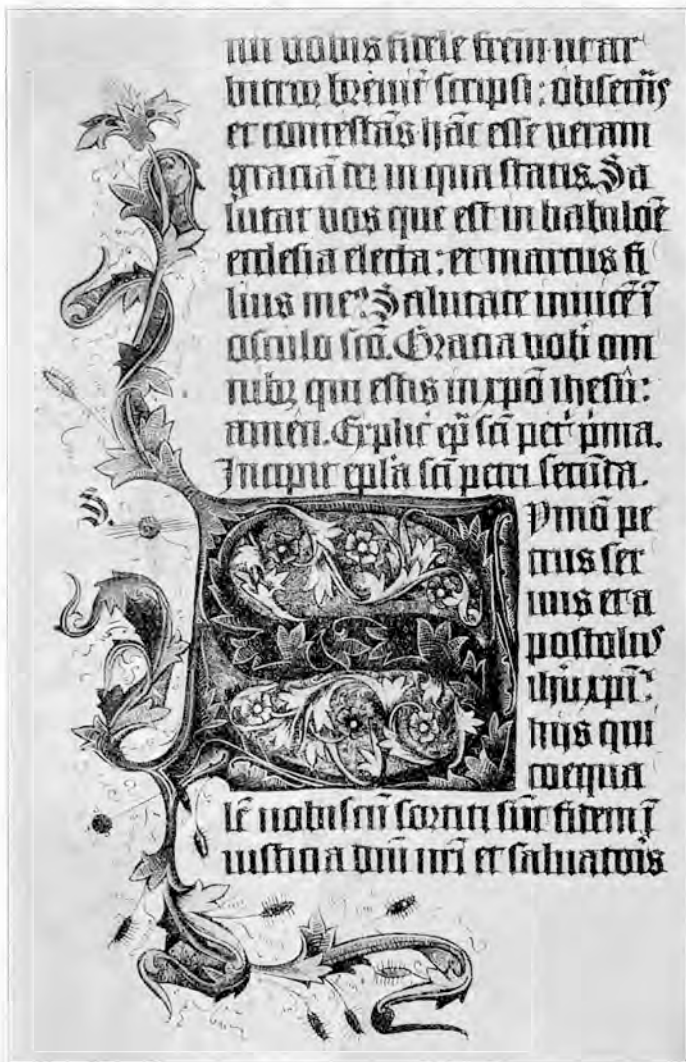 num vobis fidelē frēm ut ar
bitror breuit̄ scripsi: obsecrās
et contestās hāc esse veram
graciā dei in qua statis. Sa
lutat vos que est in babilonē
ecclesia electa: et marcus fi
lius me⁹. Salutate inuicē ī
osculo scō. Gracia vob̄ om
nibꝫ qui estis in xp̄o ihesu:
amen. Explic̄ ep̄ sc̄i pet̄ p̄ma.
Incipit ep̄la sc̄i petri secūda.
S.
ymō pe
trus ser
uus et a
postolus
ihū xp̄i:
hijs qui
coequa
lē nobiscū sortiti sūt fidem ī
iusticia dn̄i nr̄i et saluatoris